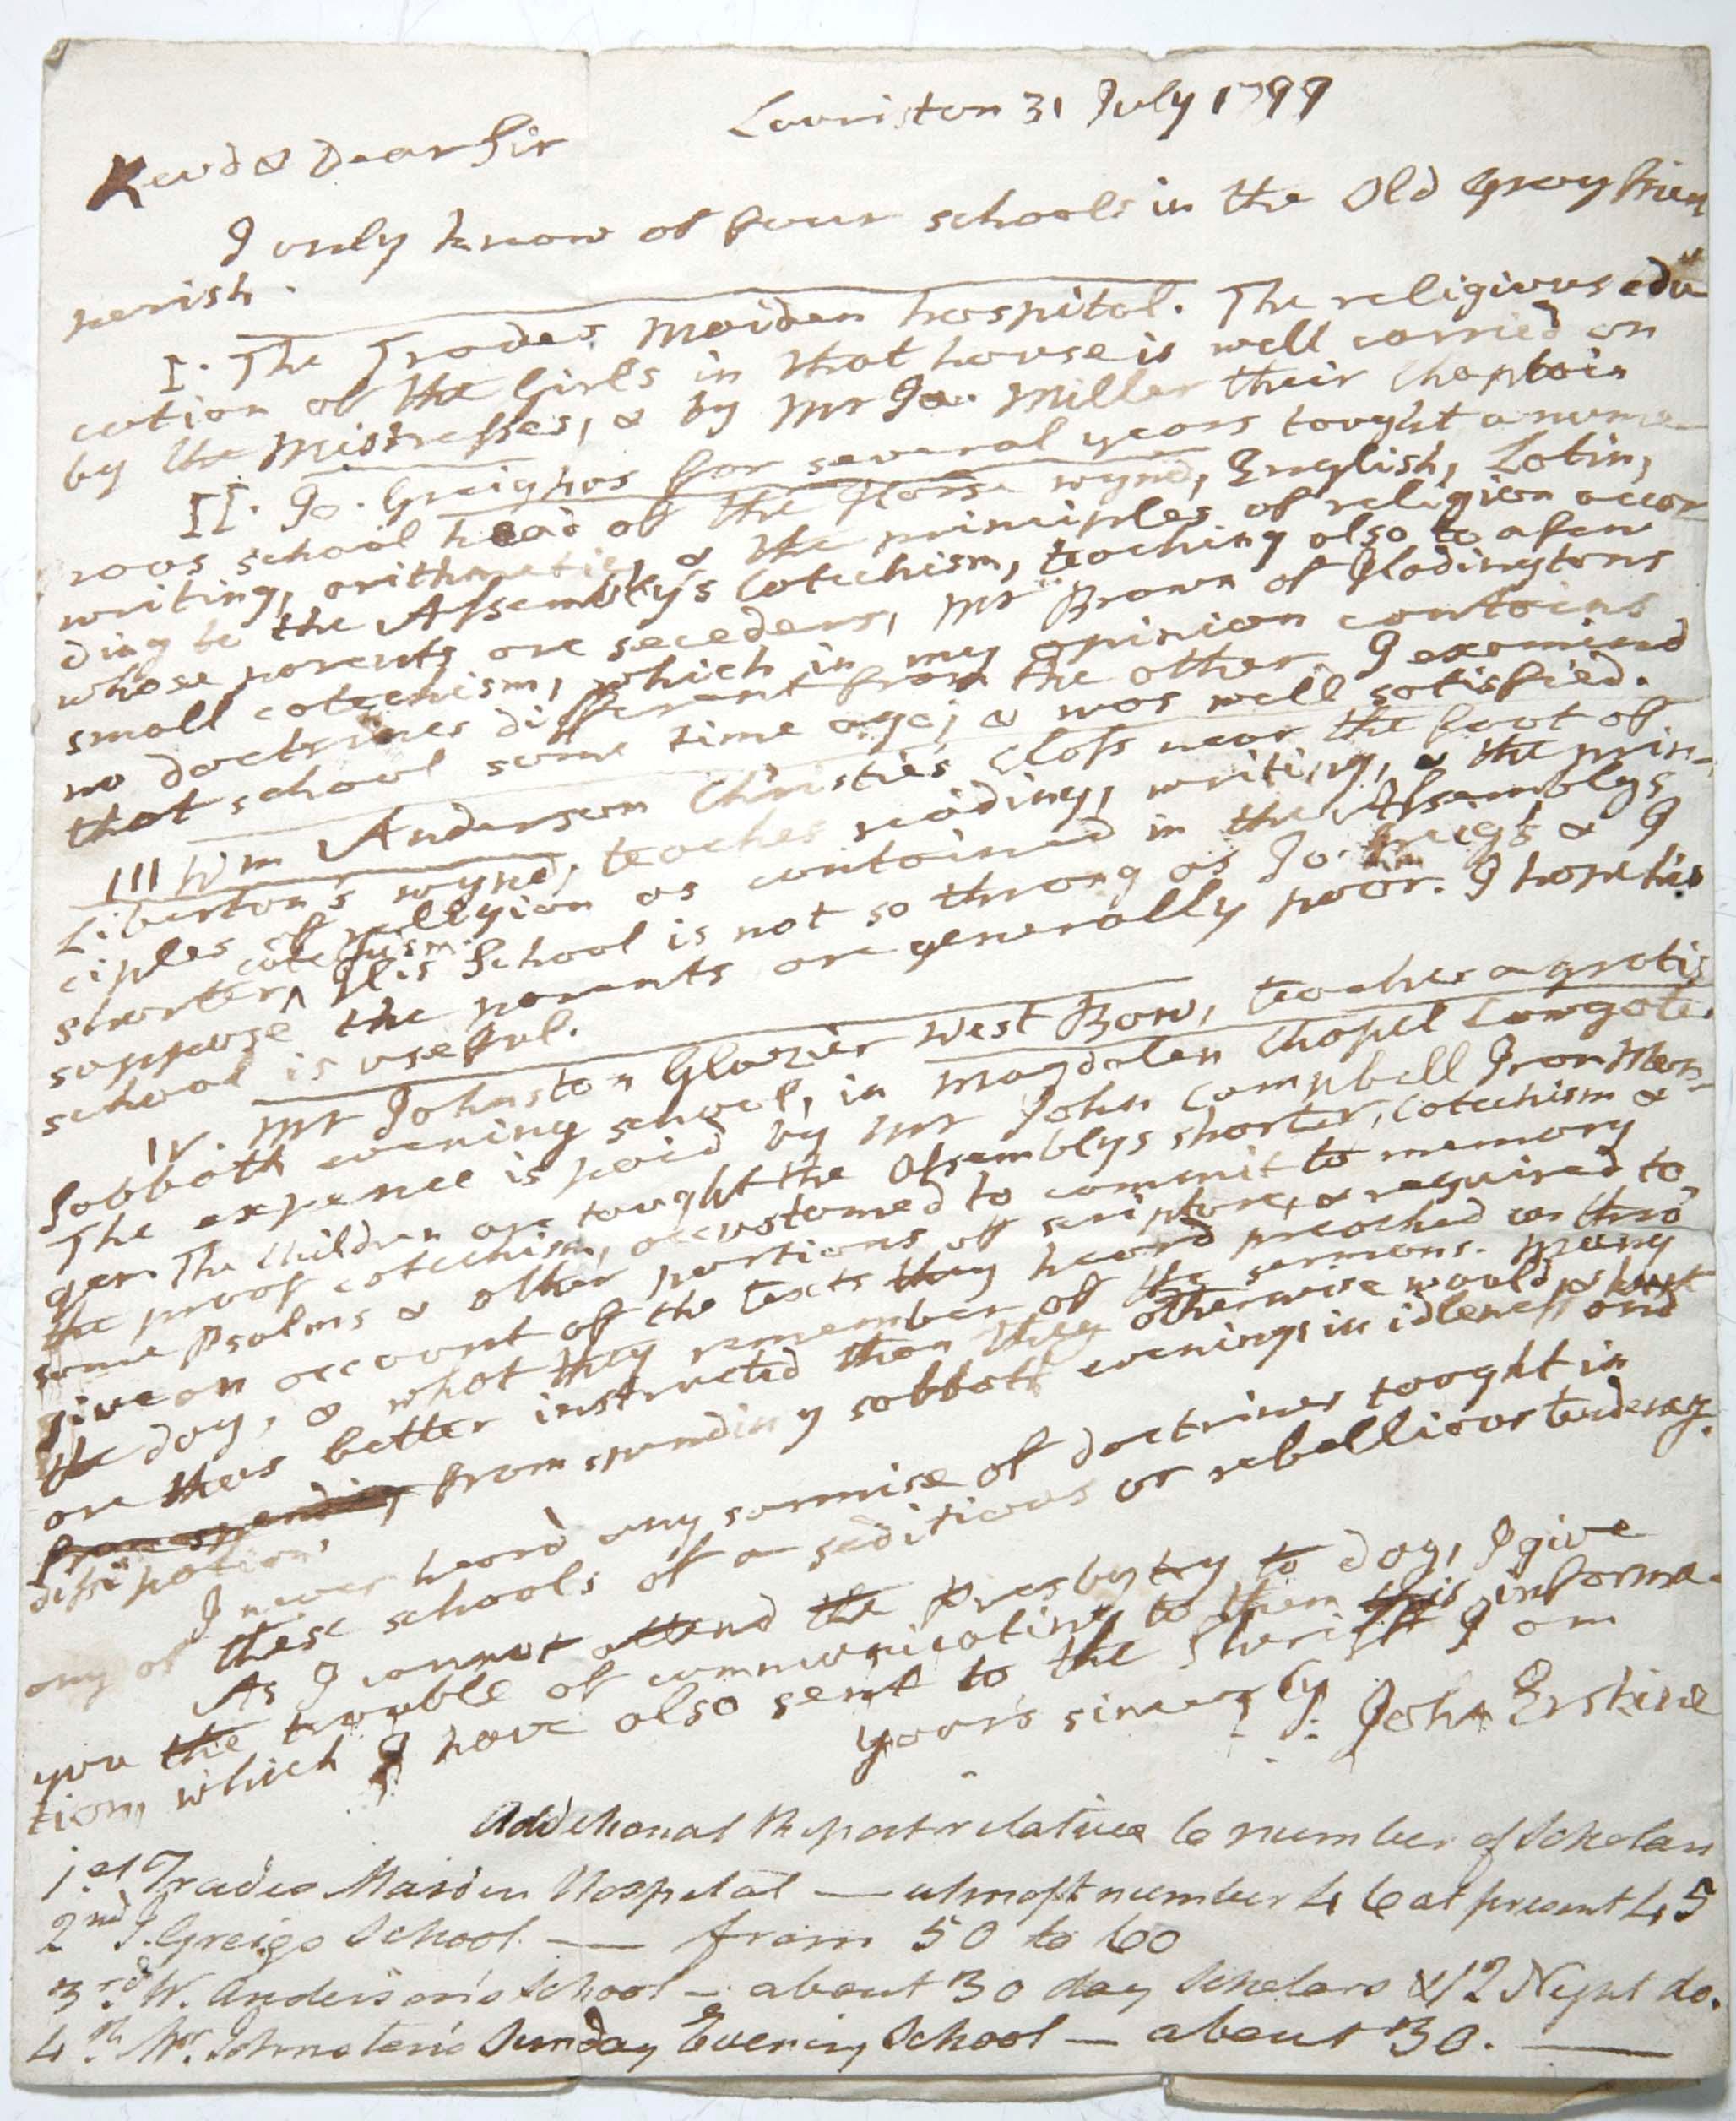 Lauriston 31 July 1799
Revd & Dear Sir
I only know of four schools in the Old Grayfriers
parish.
I. The Trades Maiden hospital. The religious edu
cation of the Girls in that house is well carried on
by the Mistresses, & by Mr Ja. Miller their Chaplain
II. Jo. Greig has for several years taught a nume
rous school head of the Horse wynd, English, Latin,
writing, arithmetic, & the principles of religion accor
ding to the Assembly's Catechism, teaching also to a few
whose parents are seceders, Mr Brown of Hadingtons
small catechism, which in my opinion contains
no doctrines different from the other. I examined
that school some time ago; & was well satisfied.
III Wm Anderson Christie's Closs near the foot of
Liberton's wynd, teaches reading, writing, & the prin-
ciples of religion as contained in the Assemblys
shorter catechism. His School is not so throng as Jo. Greig's & I
suppose the parents are generally poor. I hope his
school is useful.
IV. Mr Johnston Glazier West Bow, teaches a gratis
Sabbath evening school, in Magdalen Chapel Cowgate.
The expence is paid by Mr John Campbell Iron Mon-
ger. The Children are taught the Assemblys shorter, Catechism &
the proof catechism, accustomed to commit to memory
some Psalms & other portions of scripture, & required to
give an account of the texts they heard preached on thro'
the day, & what they remember of the sermons. Many
are thus better instructed than they otherwise would & kept
from spending, from spending sabbath evenings in idleness and
dissipation.
I never heard any surmise of doctrines taught in
any of these schools of a seditious or rebellious tendency.
As I cannot attend the Presbytry to day, I give
you the trouble of communicating to them this informa-
tion, which I have also sent to the Sheriff I am
your's sincerely John Erskine
Additional Report relative to number of Scholars
1st Trades Maiden Hospital — utmost number 46 at present 45
2nd J. Greigs School — from 50 to 60
3rd W. Anderson's School — about 30 day Scholars & 12 Night do.
4th Mr Johnston's Sunday Evening School — about 30. —